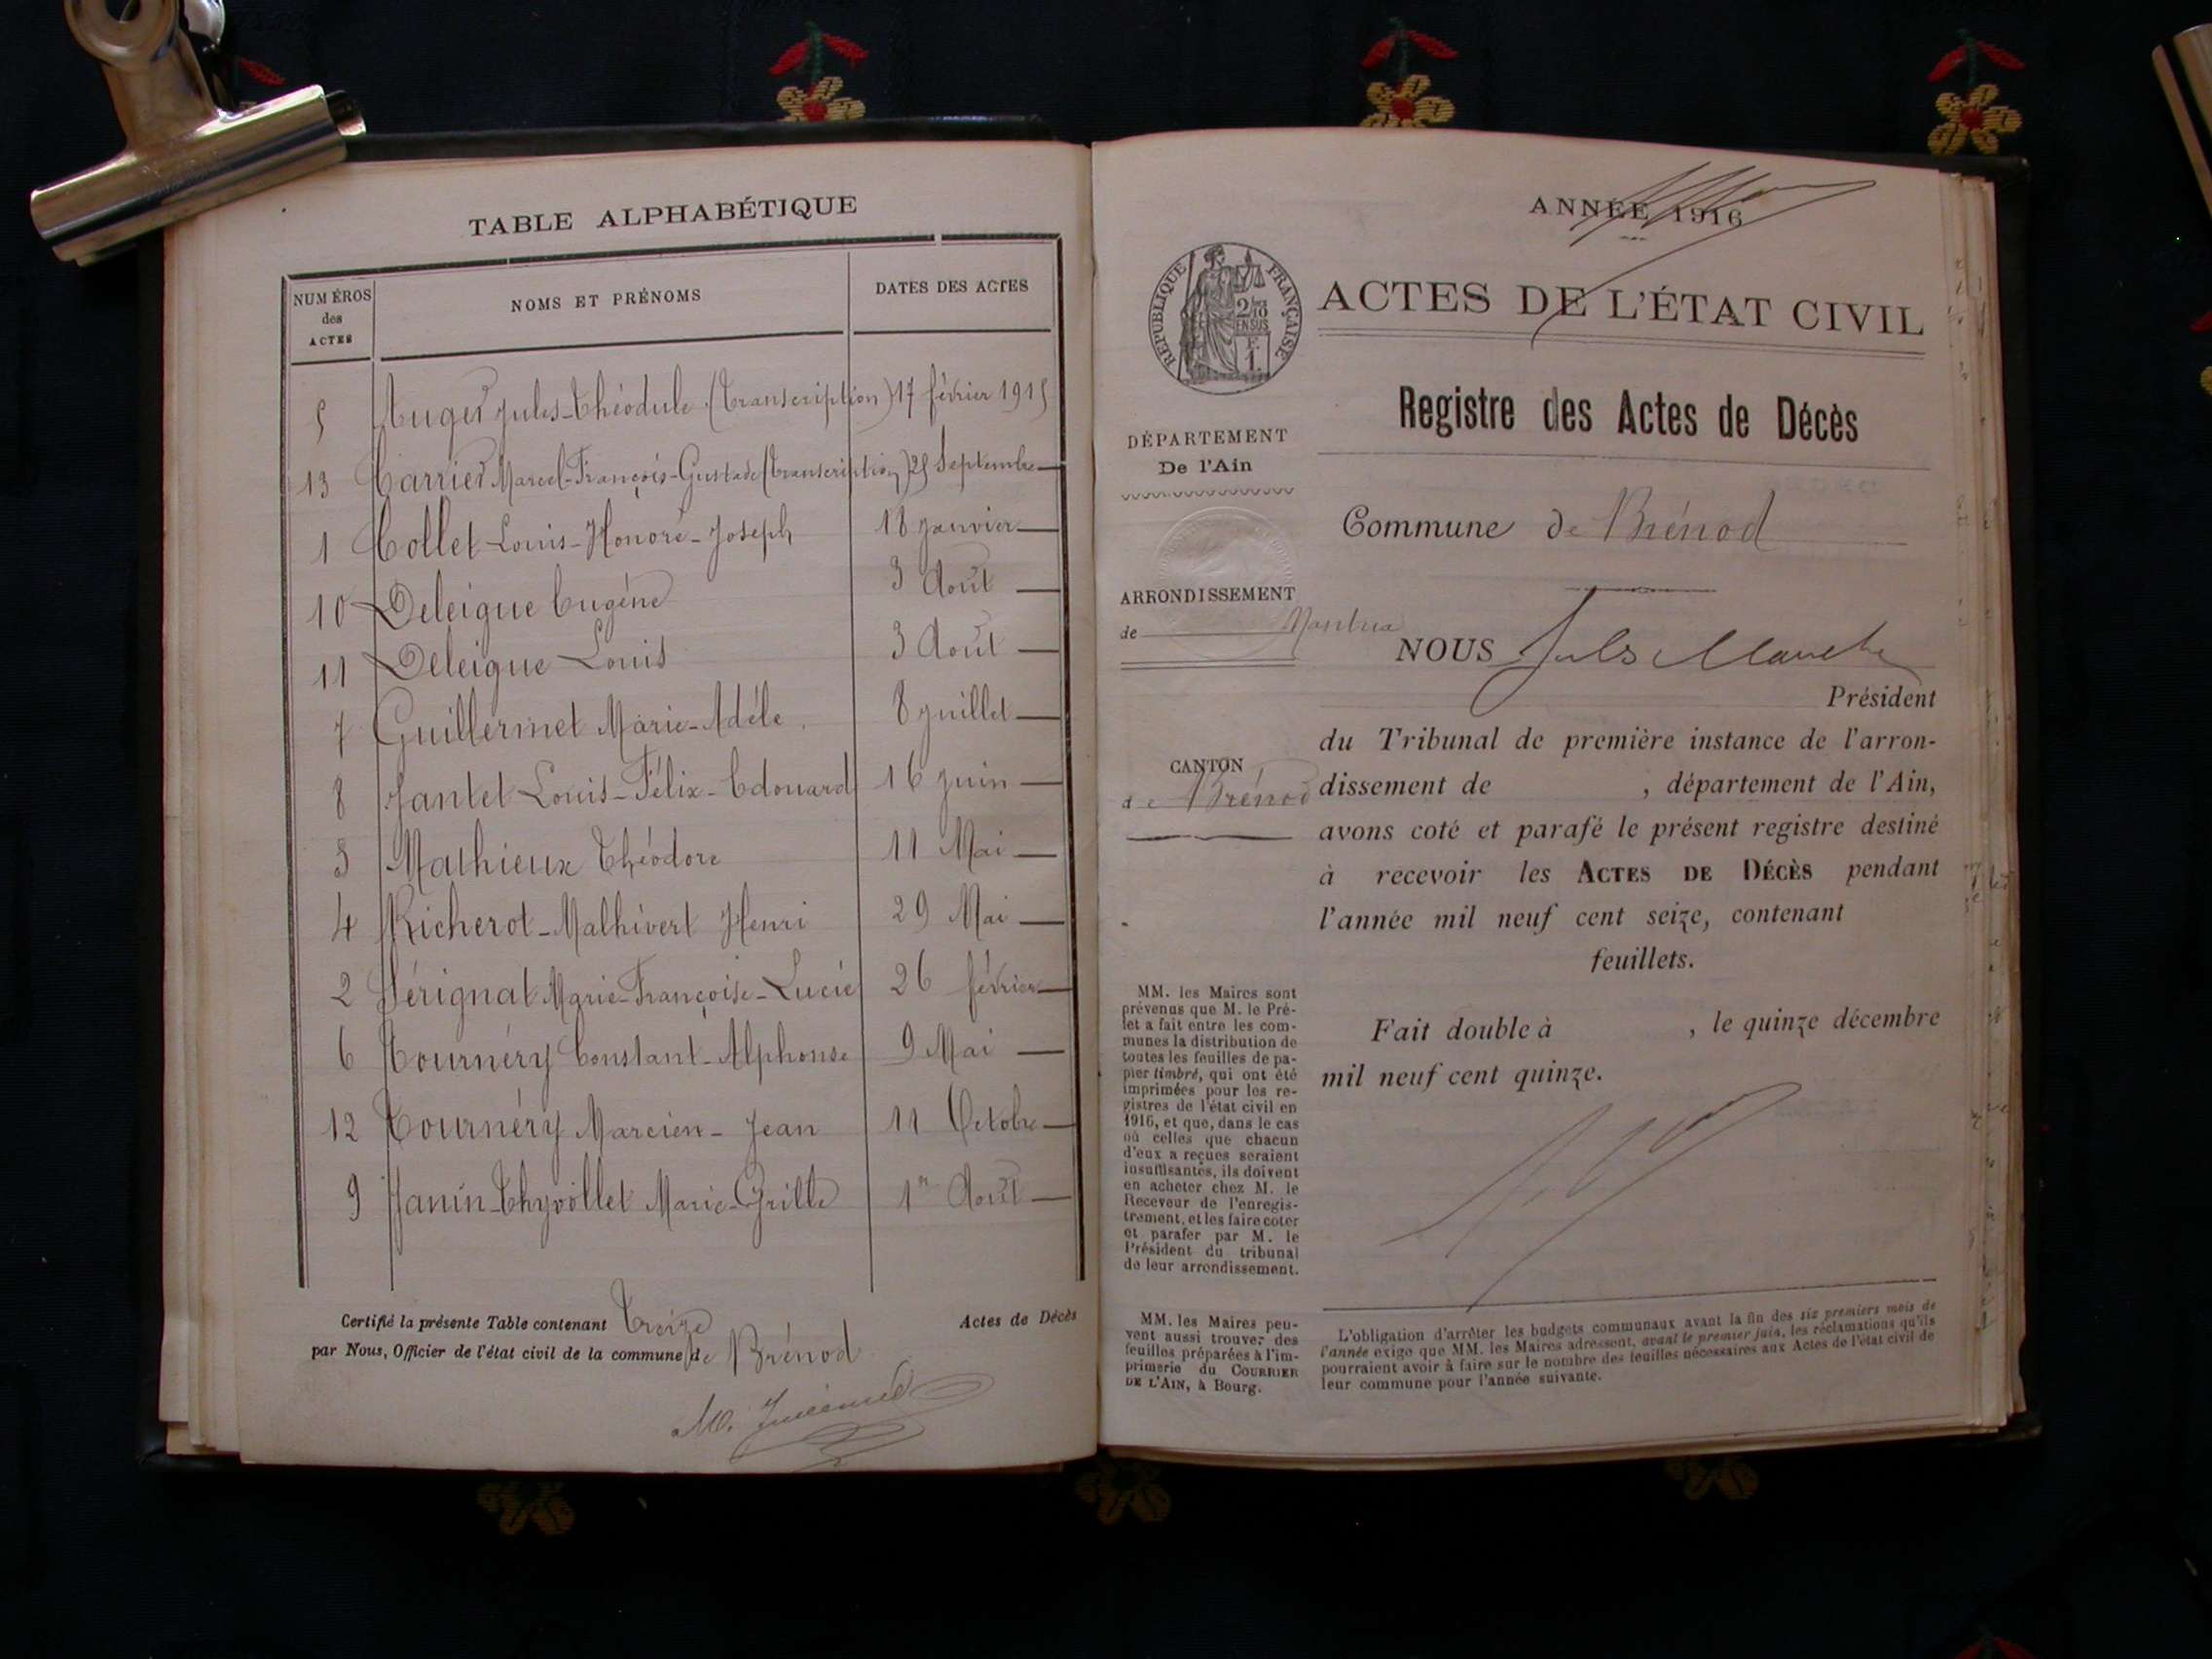 TABLE ALPHABÉTIQUE
NUMÉROS des ACTES NOMS ET PRÉNOMS DATES DES ACTES
5 Auger Jules-Théodule (Transcription) 17 février 1915
13 Carrier Marcel-François-Gustave (transcription) 25 Septembre
1 Collet Louis-Honoré-Joseph 18 Janvier
10 Deleigue Eugène 3 Août
11 Deleigue Louis 3 Août
7 Guillermet Marie-Adèle 8 Juillet
8 Jantet Louis-Félix-Edouard 16 Juin
3 Mathieux Théodore 11 Mai
4 Richerot-Malhivert Henri 29 Mai
2 Sérignat Marie-Françoise-Lucie 26 février
6 Tournéry Constant-Alphonse 9 Mai
12 Tournéry Marcien-Jean 11 Octobre
9 Janin-Thyvollet Marie-Grille 1er Août
Certifié la présente Table contenant Treize Actes de Décès
par Nous, Officier de l'état civil de la commune de Brénod
ANNÉE 1916
RÉPUBLIQUE FRANÇAISE
2/10 EN SUS
F. 1.
ACTES DE L'ÉTAT CIVIL
Registre des Actes de Décès
DÉPARTEMENT
De l'Ain
Commune de Brénod
ARRONDISSEMENT
de Nantua
CANTON
de Brénod
NOUS Jules
Président
du Tribunal de première instance de l'arron-
dissement de , département de l'Ain,
avons coté et parafé le présent registre destiné
à recevoir les ACTES DE DÉCÈS pendant
l'année mil neuf cent seize, contenant
feuillets.
Fait double à , le quinze décembre
mil neuf cent quinze.
MM. les Maires sont
prévenus que M. le Pré-
fet a fait entre les com-
munes la distribution de
toutes les feuilles de pa-
pier timbré, qui ont été
imprimées pour les re-
gistres de l'état civil en
1916, et que, dans le cas
où celles que chacun
d'eux a reçues seraient
insuffisantes, ils doivent
en acheter chez M. le
Receveur de l'enregis-
trement, et les faire coter
et parafer par M. le
Président du tribunal
de leur arrondissement.
MM. les Maires peu-
vent aussi trouver des
feuilles préparées à l'im-
primerie du COURRIER
DE L'AIN, à Bourg.
L'obligation d'arrêter les budgets communaux avant la fin des six premiers mois de
l'année exige que MM. les Maires adressent, avant le premier juin, les réclamations qu'ils
pourraient avoir à faire sur le nombre des feuilles nécessaires aux Actes de l'état civil de
leur commune pour l'année suivante.